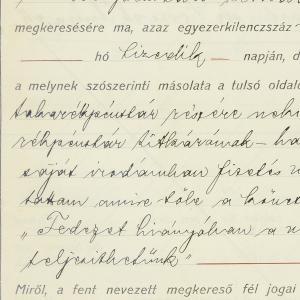 megkeresésére ma, azaz egyezerkilenczszáz
hó tizedik napján, d
a melynek szószerinti másolata a tulsó oldalo
takarékpénztár részére
rékpénztár titkárának - ha
saját irodámban fizetés
tatam amire tőle a
"Fedezet hiányában a
teljesithetünk"
Miről, a fent nevezett megkereső fél jogai